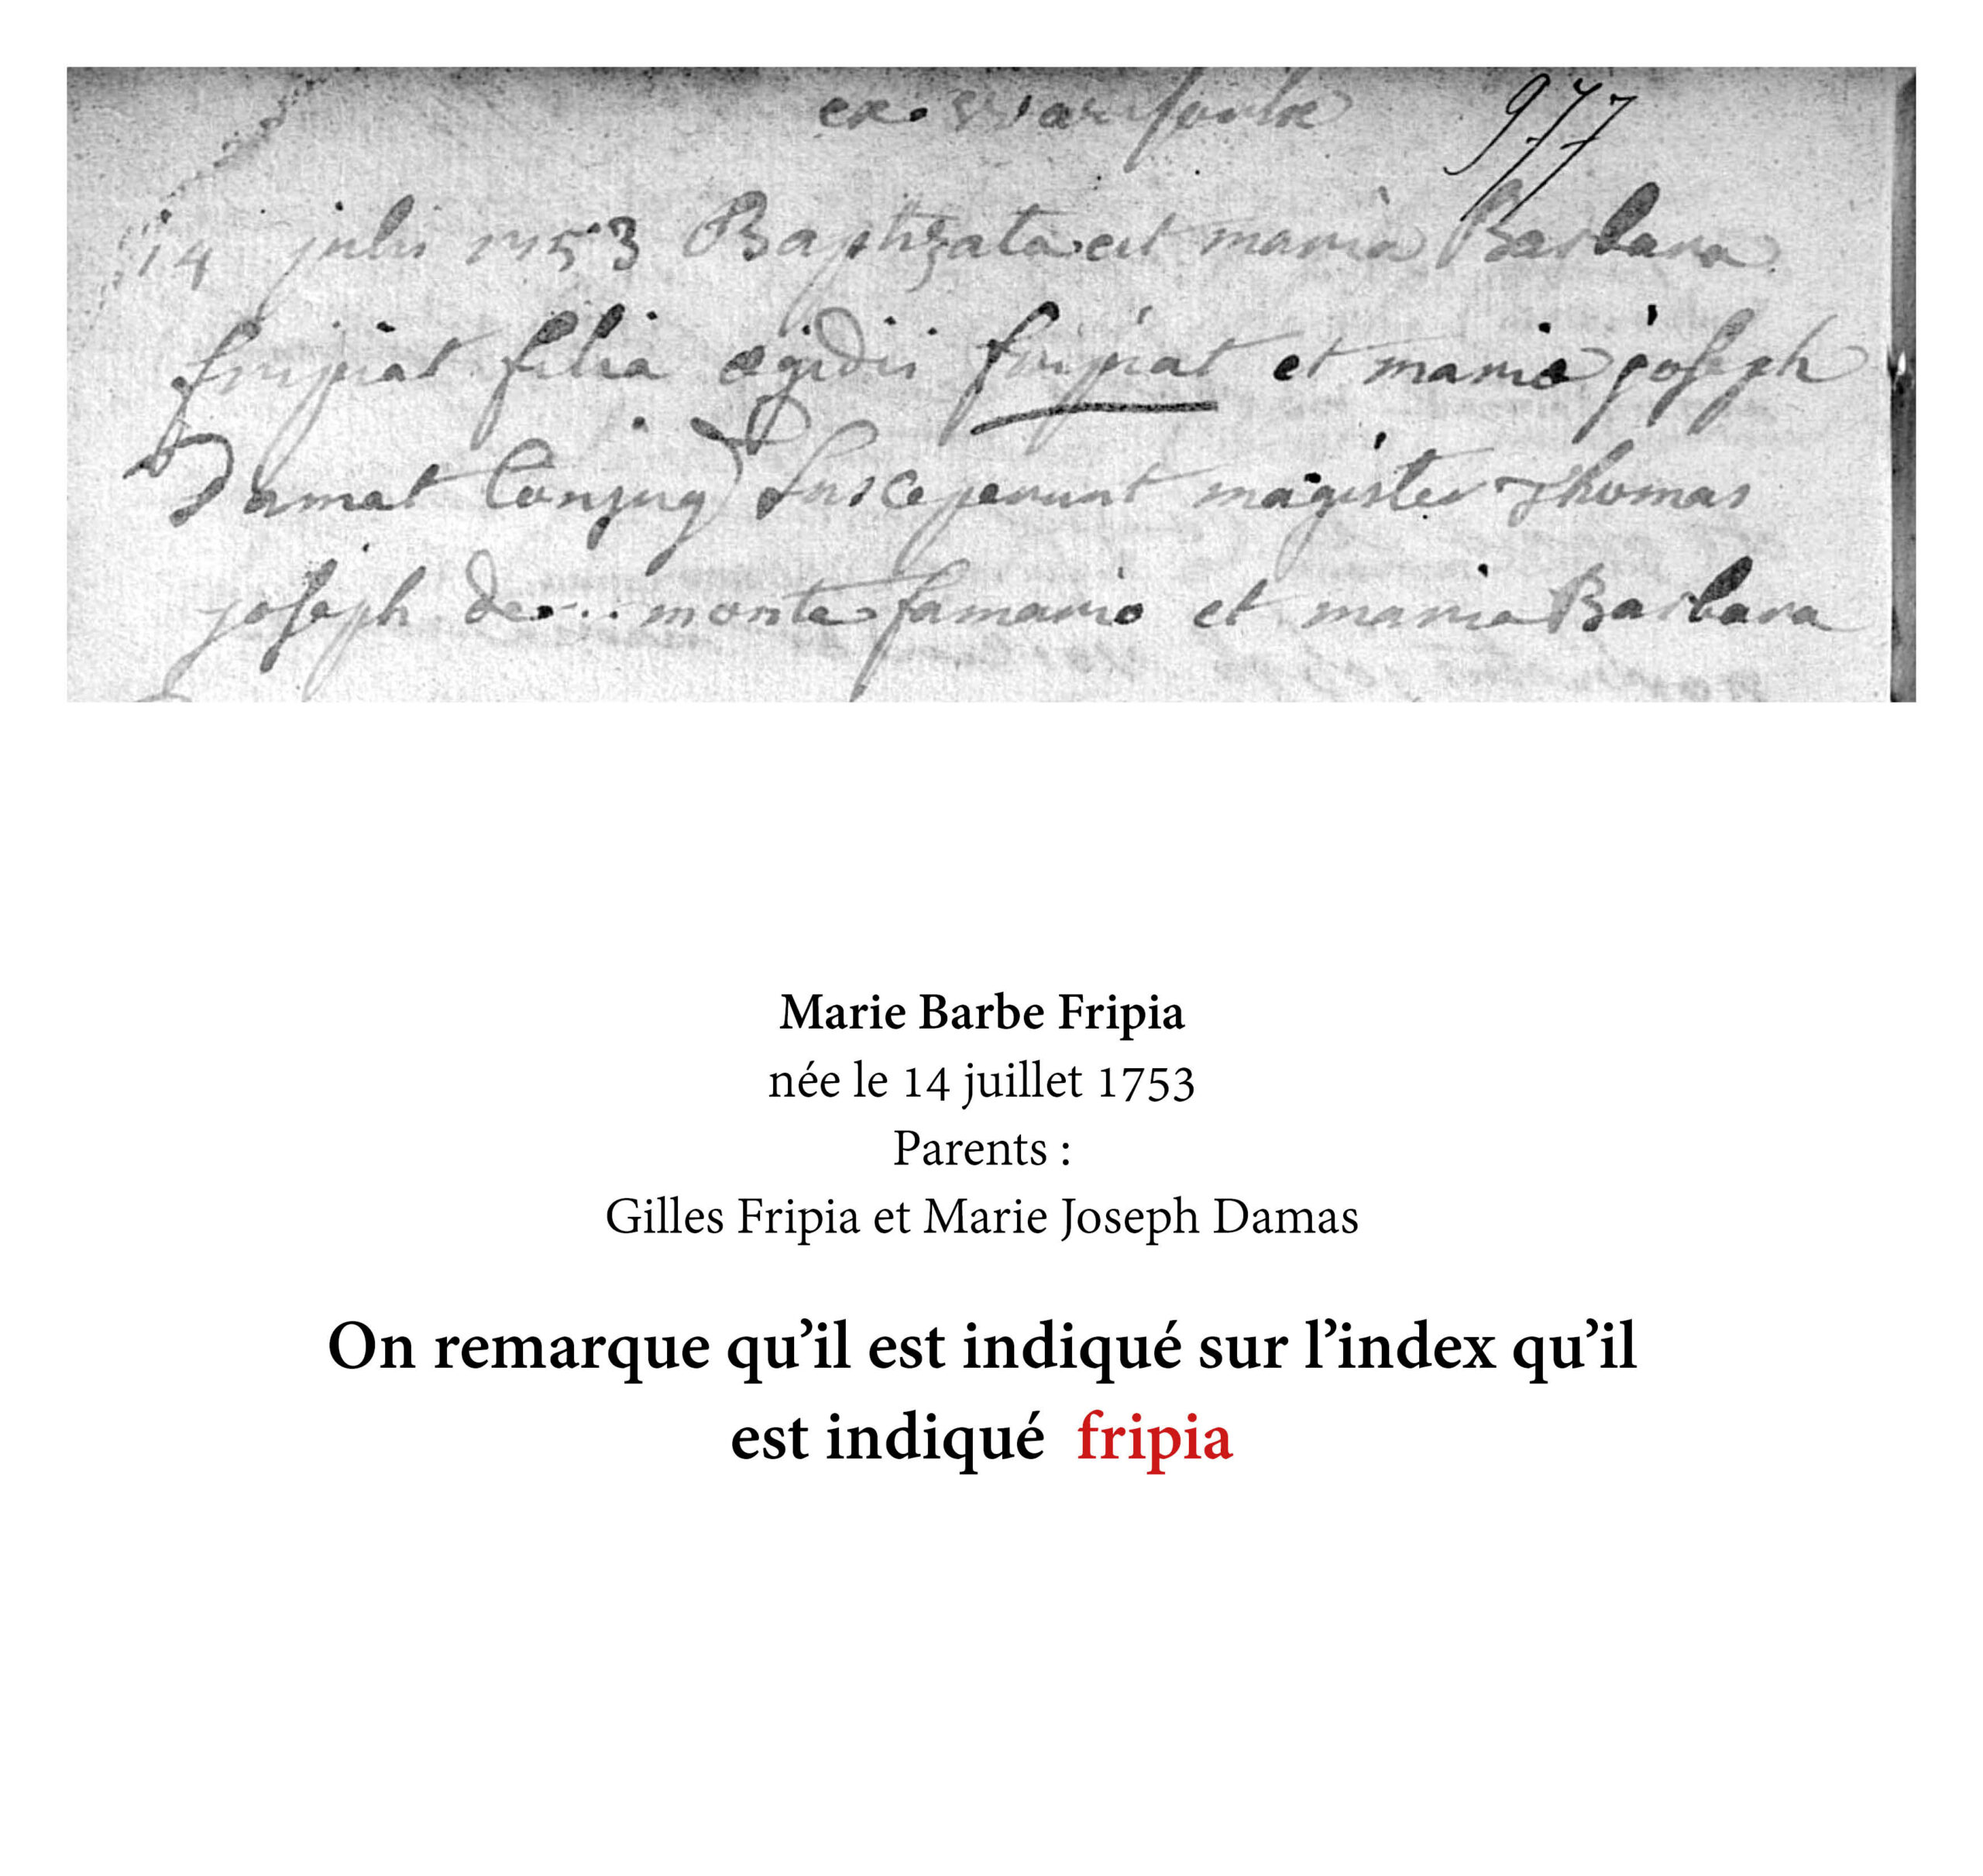 ex Warisoulx 977
14 julii 1753 Baptizata est maria Barbara
fripiat filia ægidii fripiat et mariæ joseph
Damat Conjug Susceperunt magister Thomas
joseph de... monte famario et maria Barbara
Marie Barbe Fripia
née le 14 juillet 1753
Parents :
Gilles Fripia et Marie Joseph Damas
On remarque qu’il est indiqué sur l’index qu’il
est indiqué fripia